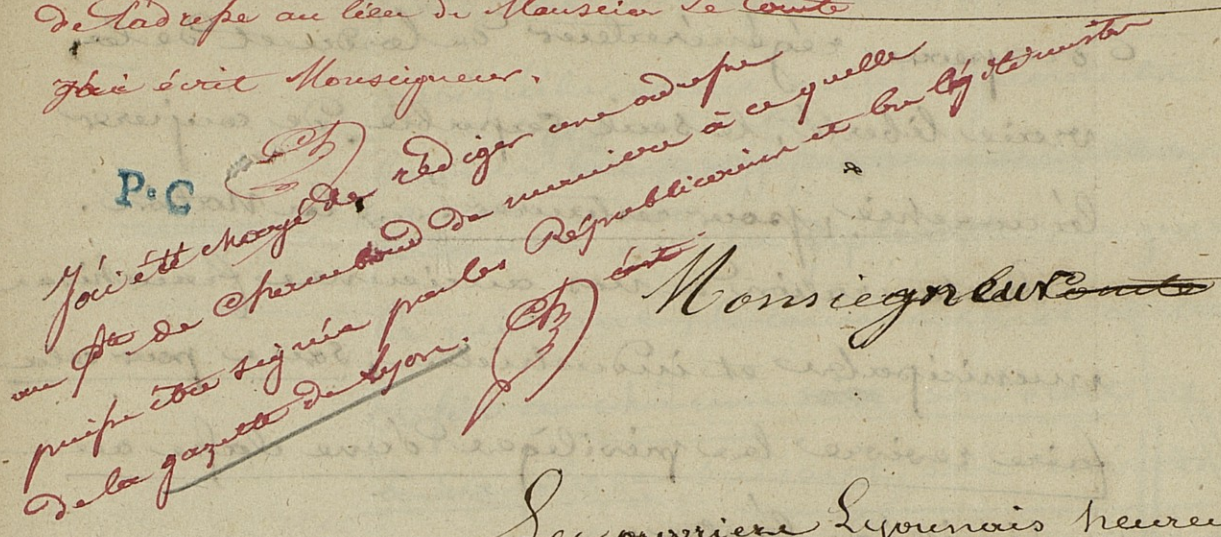 de l'adresse au lieu de Monsieur le Comte
j'ai écrit Monseigneur.
P.C
J'ai été chargé de rédiger une adresse
au Cte de Chambord de manière à ce quelle
puisse être signée par les Républicains et les légitimistes
de la gazette de Lyon.
Monsiegneur Comte
Les ouvriers Lyonnais heureu